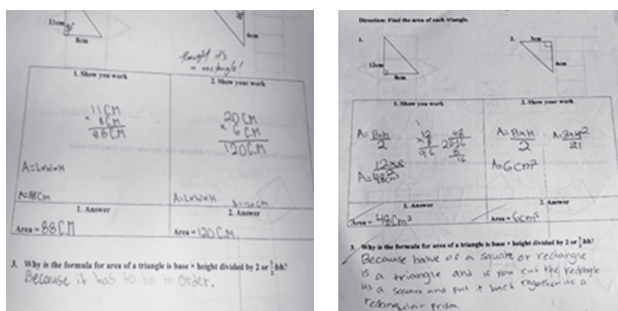 11cm
8cm
6cm
thought it's
a rectangle!
1. Show you work
2. Show your work
11 CM
x 8CM
88CM
20 CM
x 6 CM
120CM
A=LxWxH
A=88Cm
A=LxWxH
A=120Cm
1. Answer
2. Answer
Area = 88CM
Area = 120 CM
3. Why is the formula for area of a triangle is base × height divided by 2 or ½bh?
Because it has to be in order.
Direction: Find the area of each triangle.
1.
2.
12cm
8cm
1. Show you work
2. Show your work
A= BxH
2
12
x 8
96
48
2
12x8
A=48cm²
A= BxH
2
A=6cm²
1. Answer
2. Answer
Area = 48Cm²
Area = 6cm²
3. Why is the formula for area of a triangle is base × height divided by 2 or ½bh?
Because halve of a square or rectangle
is a triangle and if you cut the
as a square and put it back together its a
rectangular prism